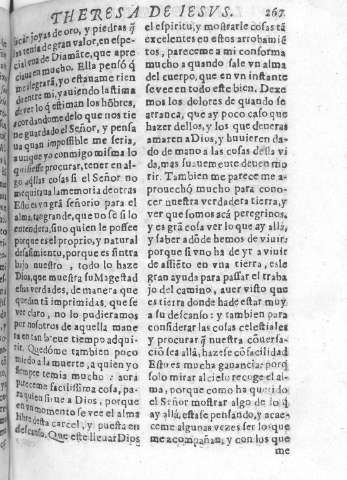 THERESA DE IESVS. 267
icar joyas de oro, y piedras q̃
las tenia de gran valor, en espe-
cial vna de Diamãte, que apre-
ciauã en mucho. Ella pensó q̃
me alegrará, yo estauame rien
do entre mi, y auiendo lastima
de ver lo q̃ estiman los hõbres,
acordandome de lo que nos tie
ne guardado el Señor, y pensa
ua quan impossible me seria,
aunque yo conmigo misma lo
quisiesse procurar, tener en al-
go aq̃llas cosas si el Señor no
me quitaua la memoria de otras
Este es vn grã señorio para el
alma, tan grande, que no se si lo
entendera, sino quien le possee
porque es el proprio, y natural
desasimiento, porque es sin tra
bajo nuestro, todo lo haze
Dios, que muestra su Magestad
estas verdades, de manera que
quedan tã imprimidas, que se
ve claro, no lo pudieramos
por nosotros de aquella mane
ra en tan breue tiempo adqui-
rir. Quedóme tambien poco
miedo a la muerte, a quien yo
siempre temia mucho: aora
pareceme facilissima cosa, pa-
ra quien sirue a Dios, porque
en vn momento se vee el alma
libre desta carcel, y puesta en
descanso. Que este lleuar Dios
el espiritu, y mostrarle cosas tã
excelentes en estos arrobamiẽ
tos, pareceme a mi conforma
mucho a quando sale vn alma
del cuerpo, que en vn instante
se vee en todo este bien. Dexe
mos los dolores de quando se
arranca, que ay poco caso que
hazer dellos, y los que deueras
amaren a Dios, y huuieren da-
do de mano a las cosas desta vi
da, mas suauemente deuen mo
rir. Tambien me parece me a-
prouechó mucho para cono-
cer nuestra verdadera tierra, y
ver que somos acá peregrinos,
y es grã cosa ver lo que ay allà,
y saber adõde hemos de viuir:
porque si vno ha de yr a viuir
de assiẽto en vna tierra, esle
gran ayuda para passar el traba
jo del camino, auer visto que
es tierra donde ha de estar muy
a su descanso: y tambien para
considerar las cosas celestiales
y procurar q̃ nuestra cõuersa-
ciõ sea allà, hazese cõ facilidad
Esto es mucha ganancia: porq̃
solo mirar al cielo recoge el al-
ma, porque como ha querido
el Señor mostrar algo de lo q̃
ay allà, estase pensando, y acae-
ceme algunas vezes ser los que
me acompañan, y con los que
me